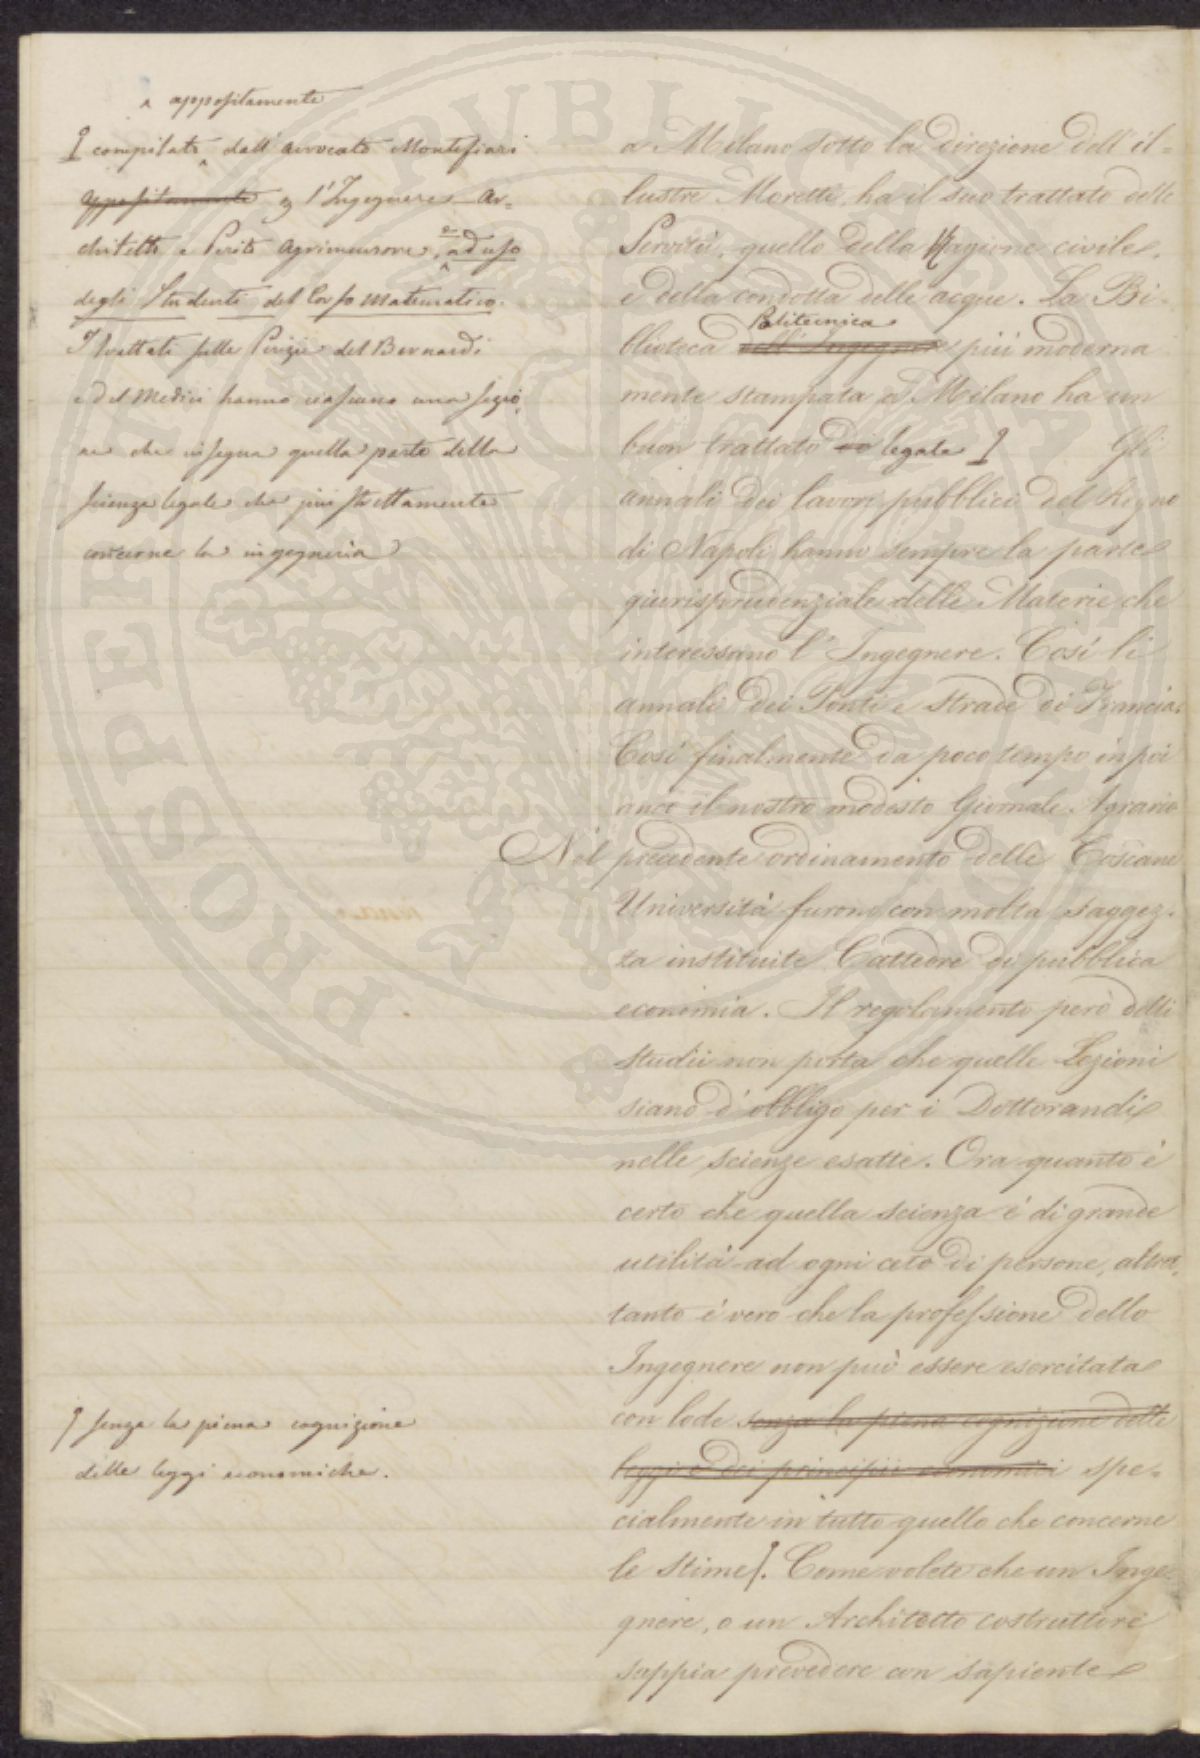 ^ appositamente
compilato ^ dall' avvocato Montefiori
appositamente p l'Ingegnere Ar=
chitetto e Perito Agrimensore, ad uso
degli Studenti del Corso matematico.
I trattati sulle Perizie del Bernardi
e Del Medici hanno ciascuno una sezio
ne che insegna quella parte della
scienza legale che più strettamente
concerne la ingegneria
a Milano sotto la direzione dell' il=
lustre Moretti, ha il suo trattato delle
Servitù, quello della Ragione civile,
e della condotta delle acque. La Bi=
Politecnica
blioteca dell'Ingegnere più moderna
mente stampata a Milano ha un
buon trattato di legale Gli
annali dei lavori pubblici del Regno
di Napoli hanno sempre la parte
giurisprudenziale delle Materie che
interessano l' Ingegnere. Così li
annali dei Ponti e strade di Francia.
Così finalmente da poco tempo in poi
anco il nostro modesto Giornale Agrario
Nel precedente ordinamento delle Toscane
Università furono con molta saggez=
za instituite Cattedre di pubblica
economia. Il regolamento però delli
studii non porta che quelle Lezioni
siano d' obbligo per i Dottorandi
nelle scienze esatte. Ora quanto è
certo che quella scienza è di grande
utilità ad ogni ceto di persone, altret=
tanto è vero che la professione dello
Ingegnere non può essere esercitata
con lode senza la piena cognizione delle
leggi e dei principii economici spe=
cialmente in tutto quello che concerne
le stime. Come volete che un Inge=
gnere, o un Architetto costruttore
sappia prevedere con sapiente
senza la piena cognizione
delle leggi economiche.
PROSPERITATI PVBLICAE